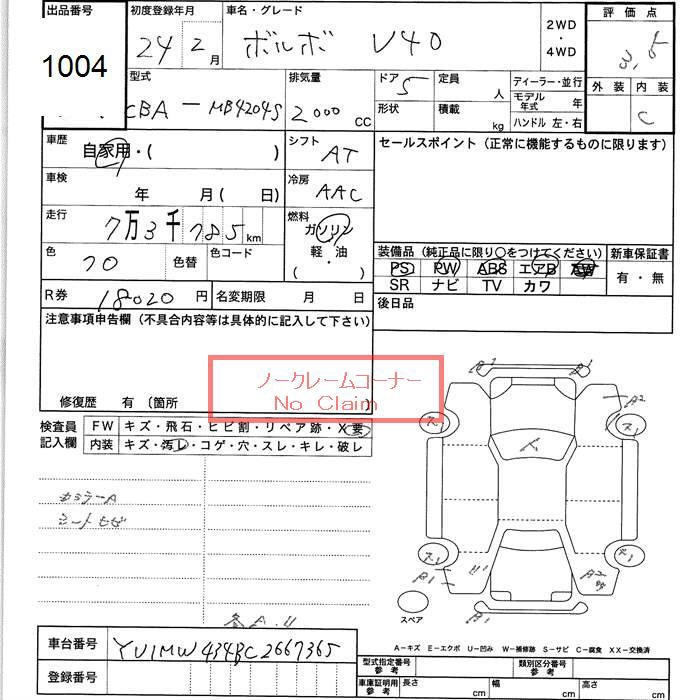 出品番号 初度登録年月 車名・グレード 評価点
1004 24年 2月 ボルボ V40 2WD・4WD 3.5
外装 内装
C
型式 排気量 ドア 5 定員 人 ディーラー・並行
CBA-MB4204S 2000 CC 形状 積載 kg モデル年式 年
ハンドル 左・右
車歴 自家用・( ) シフト AT セールスポイント (正常に機能するものに限ります)
車検 年 月( 日) 冷房 AAC
走行 7万3千785km 燃料 ガソリン
軽・油
( )
色 色替 色コード 装備品 (純正品に限り○をつけてください) 新車保証書
PS PW ABS エアB AW 有・無
SR ナビ TV カワ
R券 18020円 名変期限 月 日 後日品
注意事項申告欄 (不具合内容等は具体的に記入して下さい)
ノークレームコーナー
No Claim
修復歴 有 〔箇所
検査員記入欄 FW キズ・飛石・ヒビ割・リペア跡・X要
内装 キズ・汚レ・コゲ・穴・スレ・キレ・破レ
A2
スペア
車台番号 YV1MW434BC2667365
A-キズ E-エクボ U-凹み W-補修跡 S-サビ C-腐食 XX-交換済
登録番号
型式指定番号 参考 類別区分番号 参考
車庫証明用 参考 長さ cm 幅 cm 高さ cm